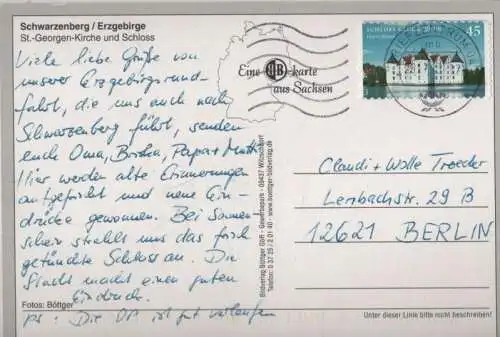 Schwarzenberg / Erzgebirge
St.-Georgen-Kirche und Schloss
Viele liebe Grüße von
unserer Erzgebirgsrund-
fahrt, die uns auch nach
Schwarzenberg führt, senden
euch Oma, Papa + Mutti.
Hier werden alte Erinnerungen
aufgefrischt und neue Ein-
drücke gewonnen. Bei Sonnen-
schein strahlt uns das frisch
getünchte Schloss an. Die
Stadt macht einen guten
Eindruck.
PS: Die ist gut verlaufen
Fotos: Böttger
Eine B-karte
aus Sachsen
45
Bildverlag Böttger GbR · Gewerbepark · 09437 Witzschdorf
Telefon: 0 37 25 / 2 01 40 · www.buettger-bildverlag.de
Claudi + Wolle Troeder
Lenbachstr. 29 B
12621 BERLIN
Unter dieser Linie bitte nicht beschriften!